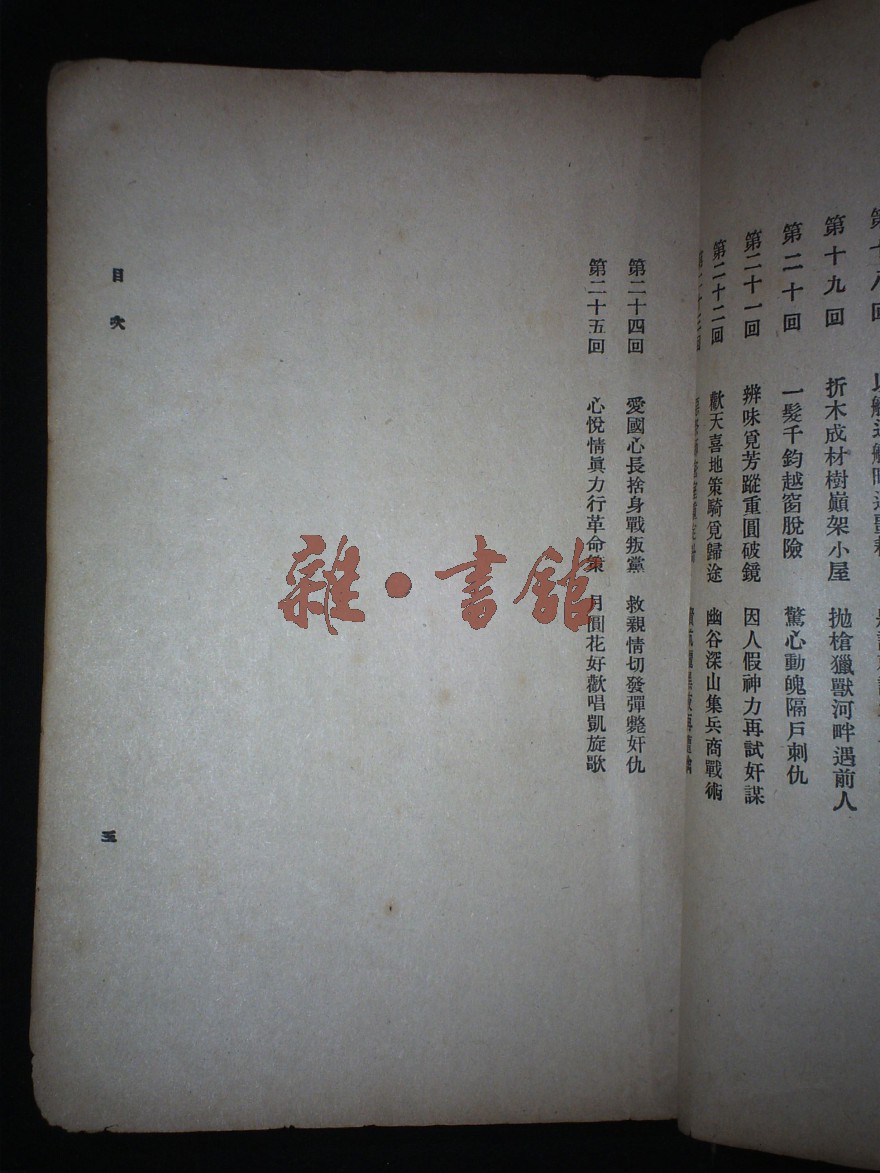 第十八回
第十九回 折木成材樹巔架小屋 拋槍獵獸河畔遇前人
第二十回 一髮千鈞越窗脫險 驚心動魄隔戶刺仇
第二十一回 辨味覓芳蹤重圓破鏡 因人假神力再試奸謀
第二十二回 歡天喜地策騎覓歸途 幽谷深山集兵商戰術
第二十四回 愛國心長捨身戰叛黨 救親情切發彈斃奸仇
第二十五回 心悅情眞力行革命策 月圓花好歡唱凱旋歌
目次
三
雜·書館